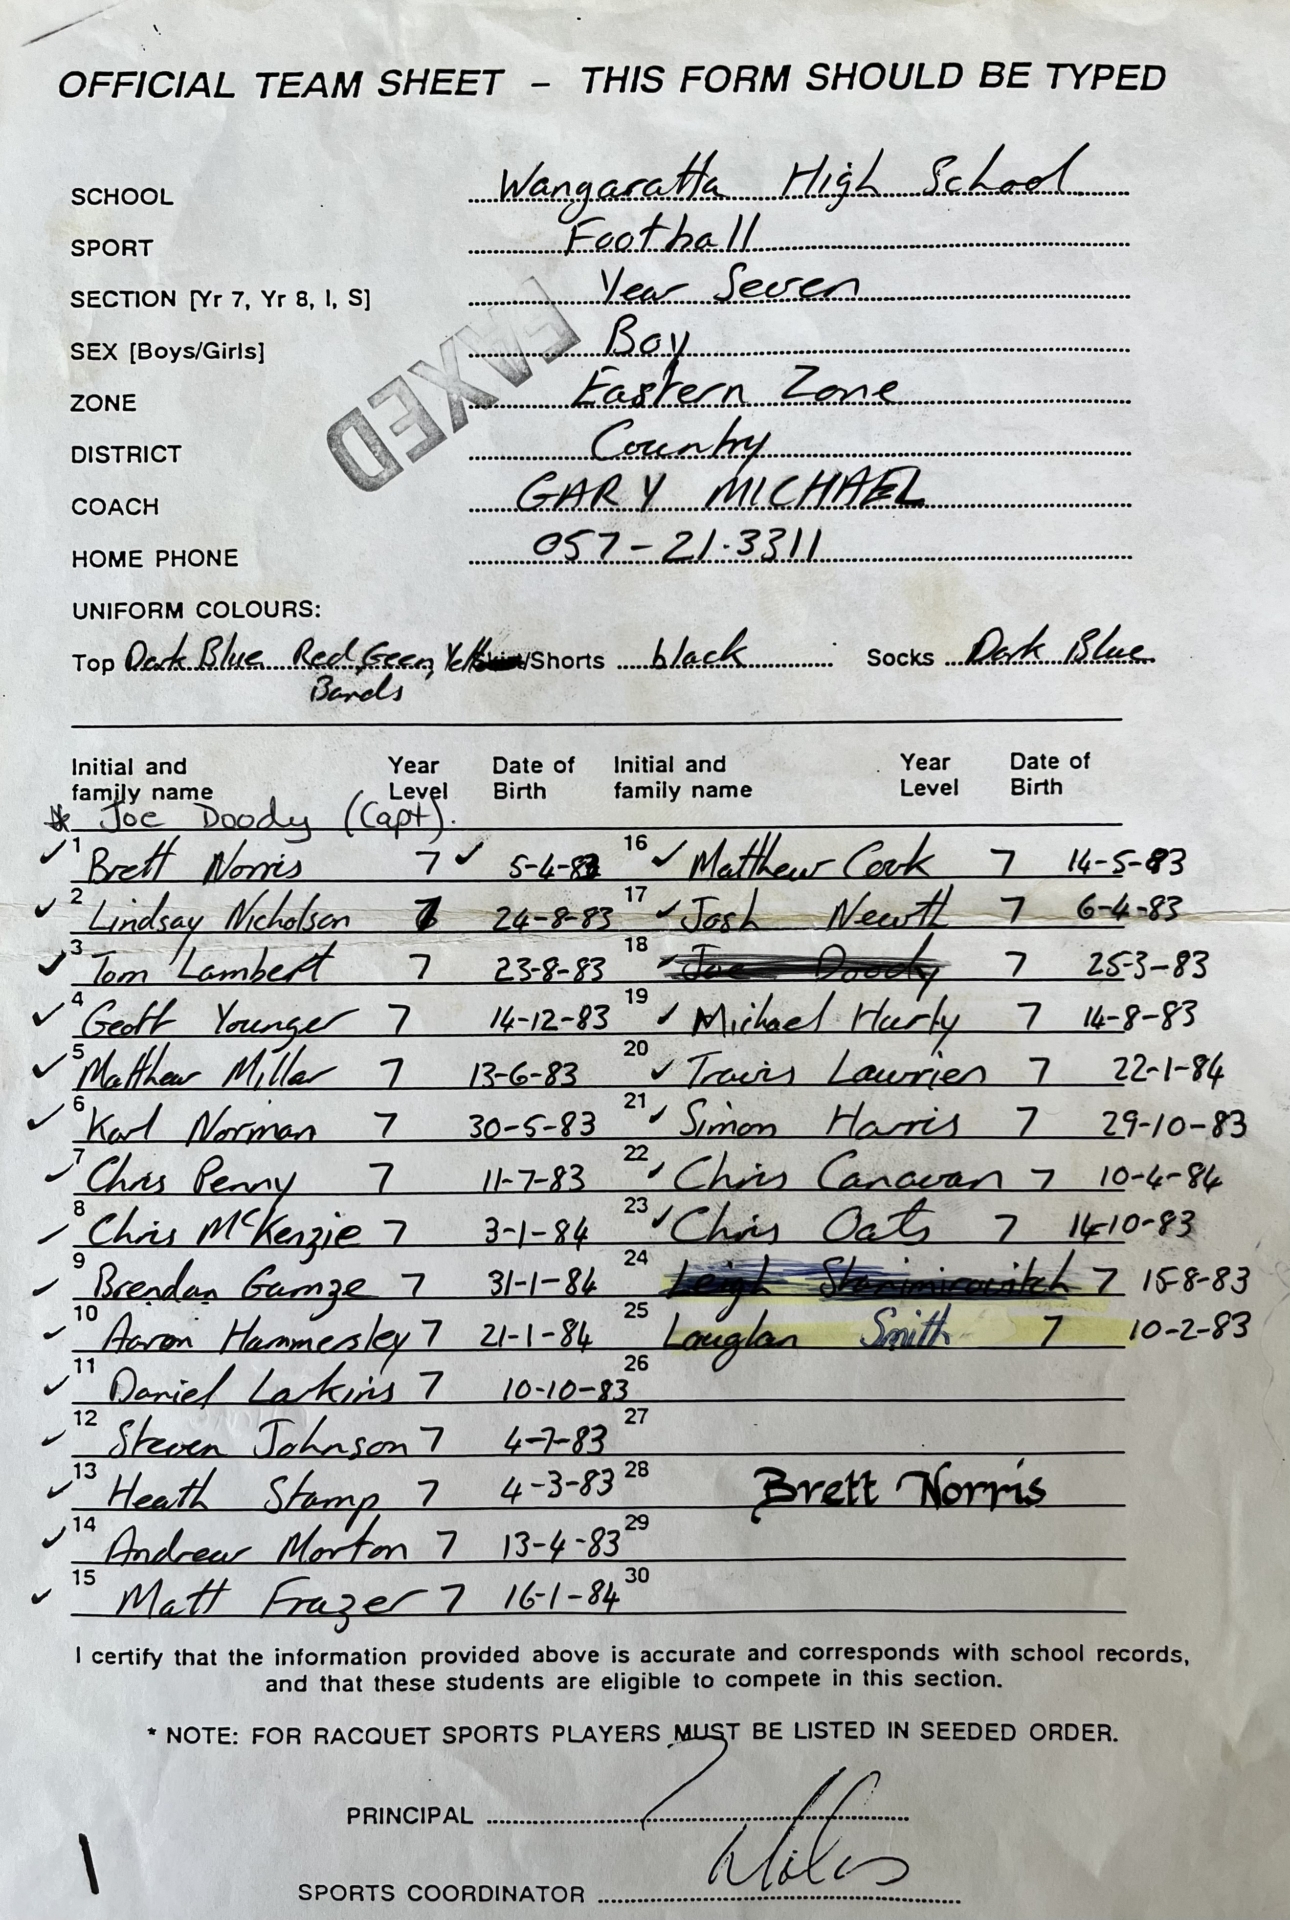 OFFICIAL TEAM SHEET – THIS FORM SHOULD BE TYPED
SCHOOL Wangaratta High School
SPORT Football
SECTION [Yr 7, Yr 8, I, S] Year Seven
FAXED
SEX [Boys/Girls] Boy
ZONE Eastern Zone
DISTRICT Country
COACH GARY MICHAEL
HOME PHONE 057-21-3311
UNIFORM COLOURS:
Top Dark Blue Red, Geen, Yell /Shorts black Socks Dark Blue
Bands
Initial and family name Year Level Date of Birth Initial and family name Year Level Date of Birth
* Joe Doody (Capt).
1 Brett Norris 7 5-4-83 16 Matthew Cook 7 14-5-83
2 Lindsay Nicholson 7 24-8-83 17 Josh Newth 7 6-4-83
3 Tom Lambert 7 23-8-83 18 Joe Doody 7 25-3-83
4 Geoff Younger 7 14-12-83 19 Michael Hurly 7 14-8-83
5 Matthew Millar 7 13-6-83 20 Travis Lawrien 7 22-1-84
6 Karl Norman 7 30-5-83 21 Simon Harris 7 29-10-83
7 Chris Penny 7 11-7-83 22 Chris Canavan 7 10-4-84
8 Chris McKenzie 7 3-1-84 23 Chris Oats 7 14-10-83
9 Brendan Gamze 7 31-1-84 24 Leigh Stanimirovitch 7 15-8-83
10 Aaron Hammersley 7 21-1-84 25 Lauglan Smith 7 10-2-83
11 Daniel Larkins 7 10-10-83 26
12 Steven Johnson 7 4-7-83 27
13 Heath Stamp 7 4-3-83 28 Brett Norris
14 Andrew Morton 7 13-4-83 29
15 Matt Frazer 7 16-1-84 30
I certify that the information provided above is accurate and corresponds with school records,
and that these students are eligible to compete in this section.
* NOTE: FOR RACQUET SPORTS PLAYERS MUST BE LISTED IN SEEDED ORDER.
PRINCIPAL
SPORTS COORDINATOR